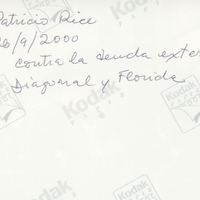 Patricio Rice
26/9/2000
contra la deuda exter
Diagonal y Florida
Kodak
Kodak
Kodak
Kodak